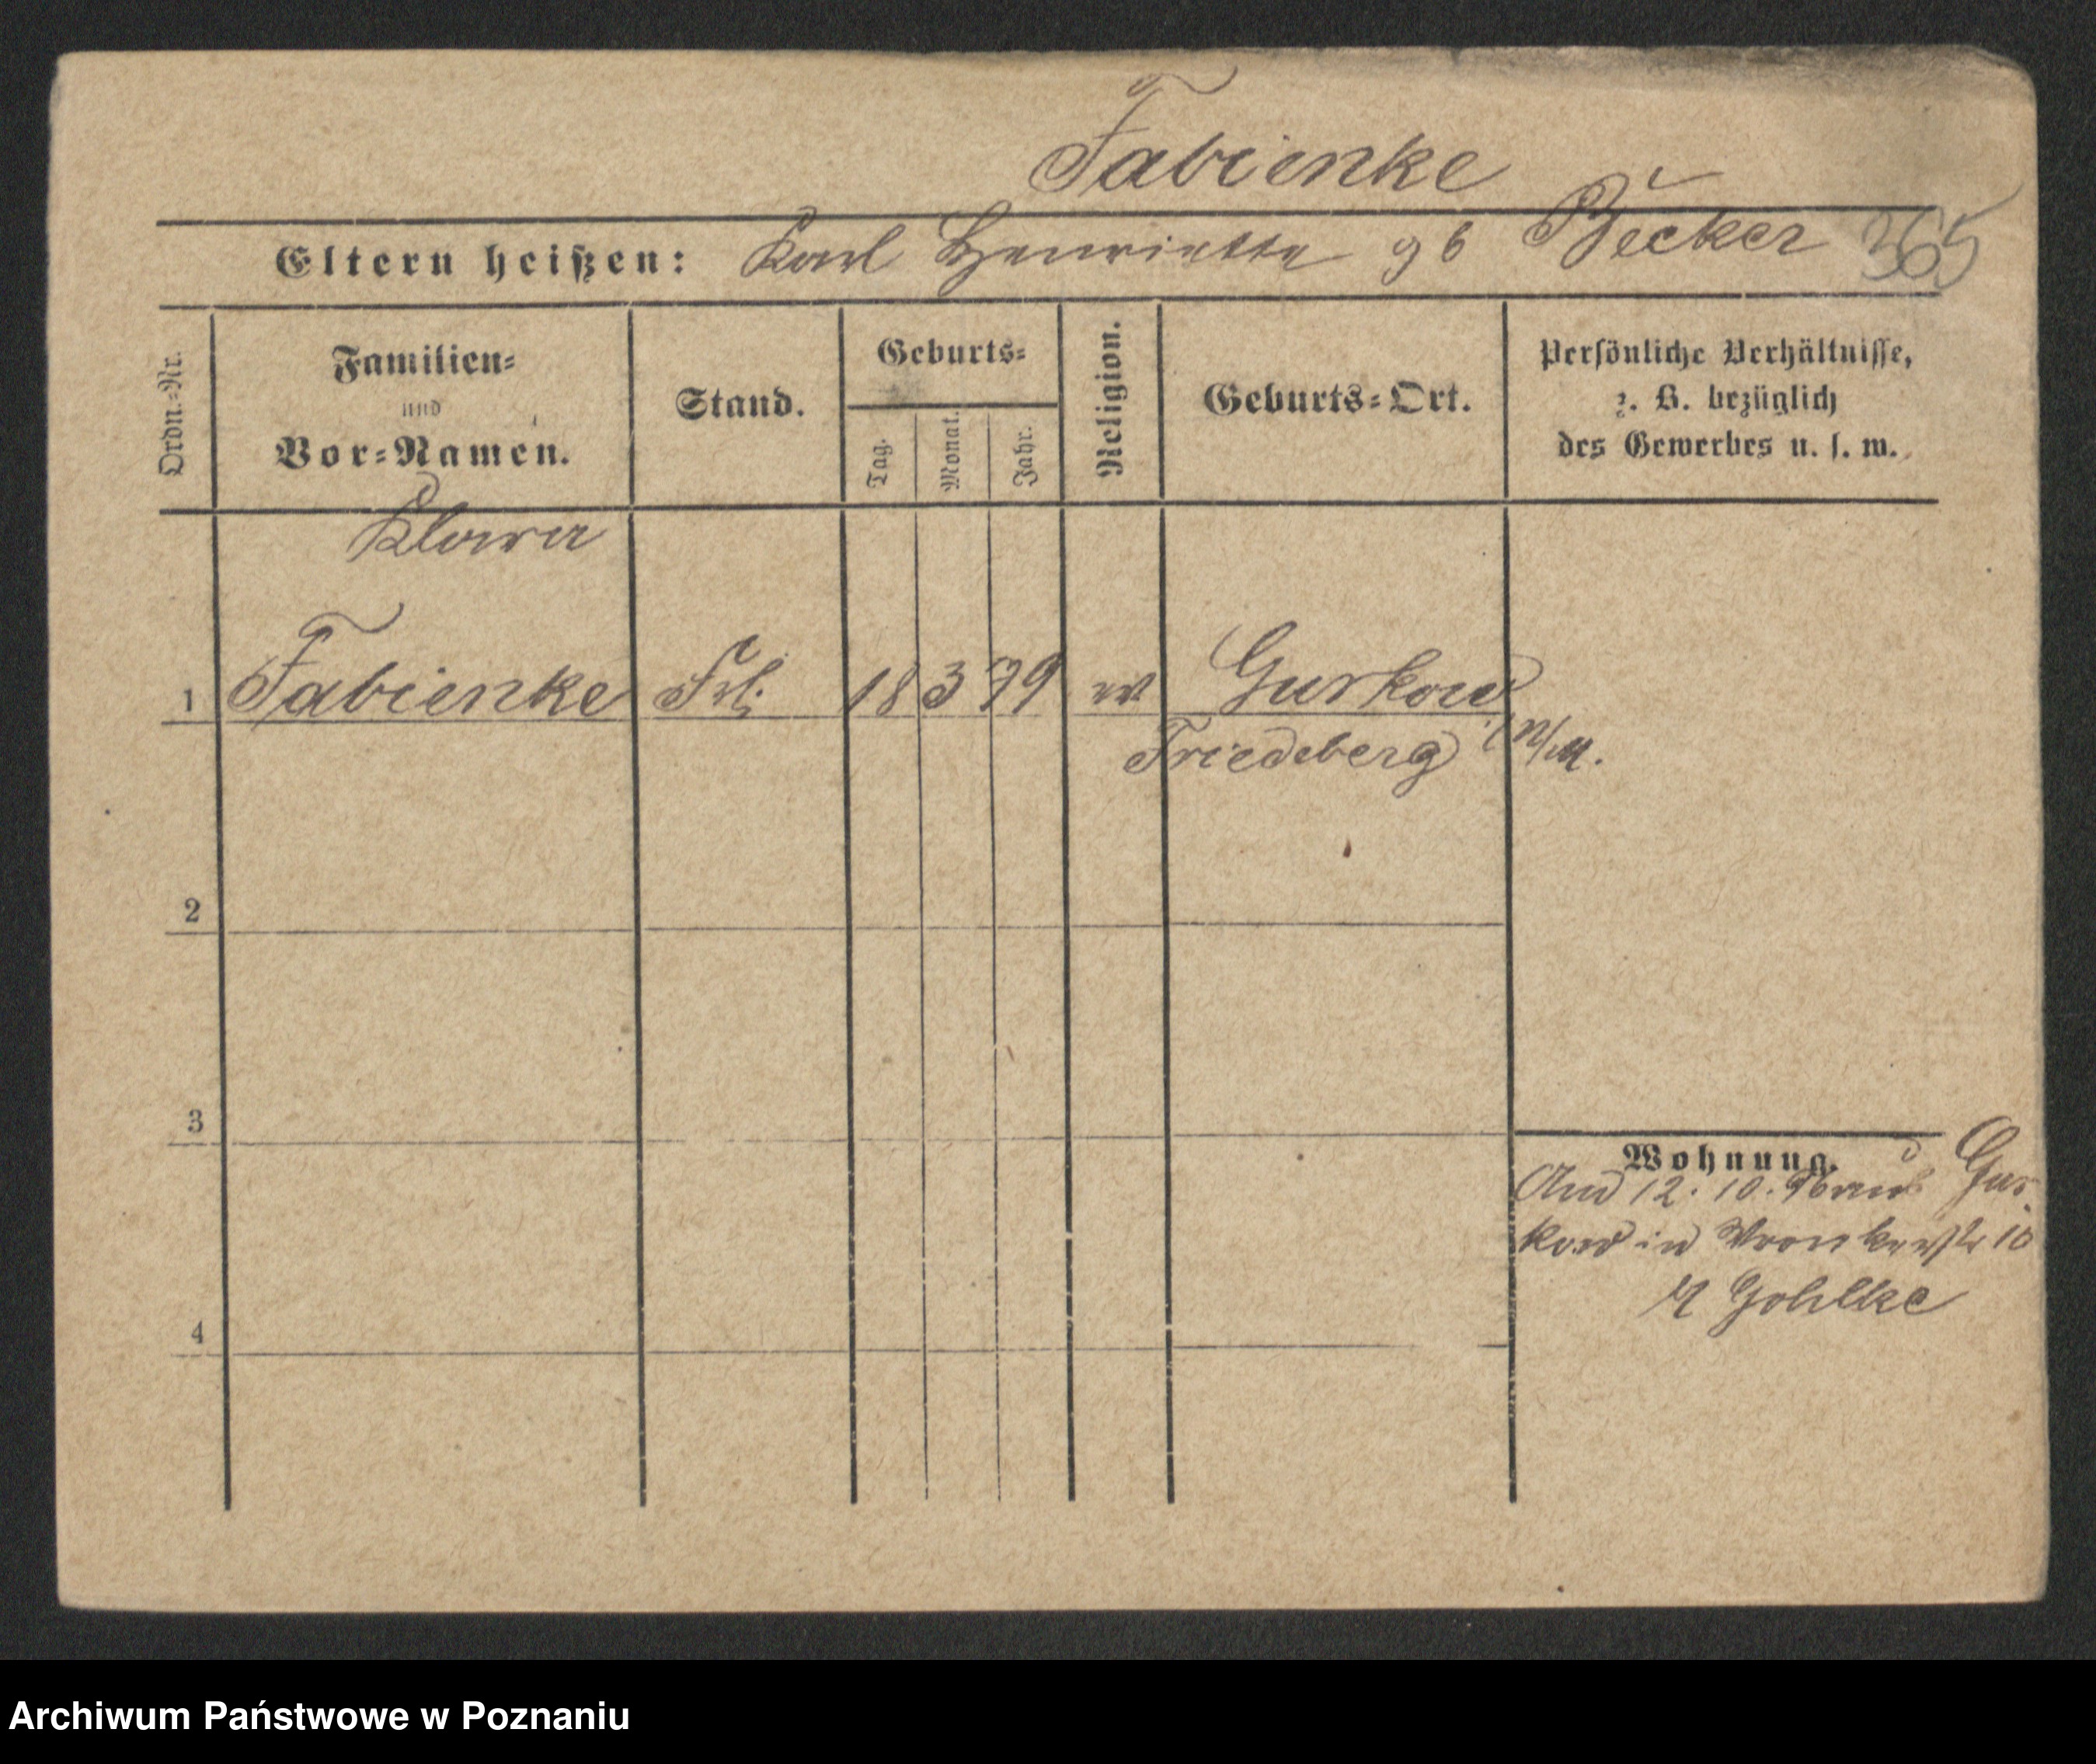 Fabienke
Eltern heißen: Karl Henriette gb Becker 365
Ordn.-Nr.
Familien-
und
Vor-Namen.
Stand.
Geburts-
Tag.
Monat.
Jahr.
Religion.
Geburts-Ort.
Persönliche Verhältnisse,
z. B. bezüglich
des Gewerbes u. s. w.
Klara
1 Fabienke Frl. 18 3 79 ev Gurkow
Friedeberg N/M.
2
3
4
Wohnung.
12. 10. 96 aus Gur
kow in Wronkerstr 10
Gohlke
Archiwum Państwowe w Poznaniu